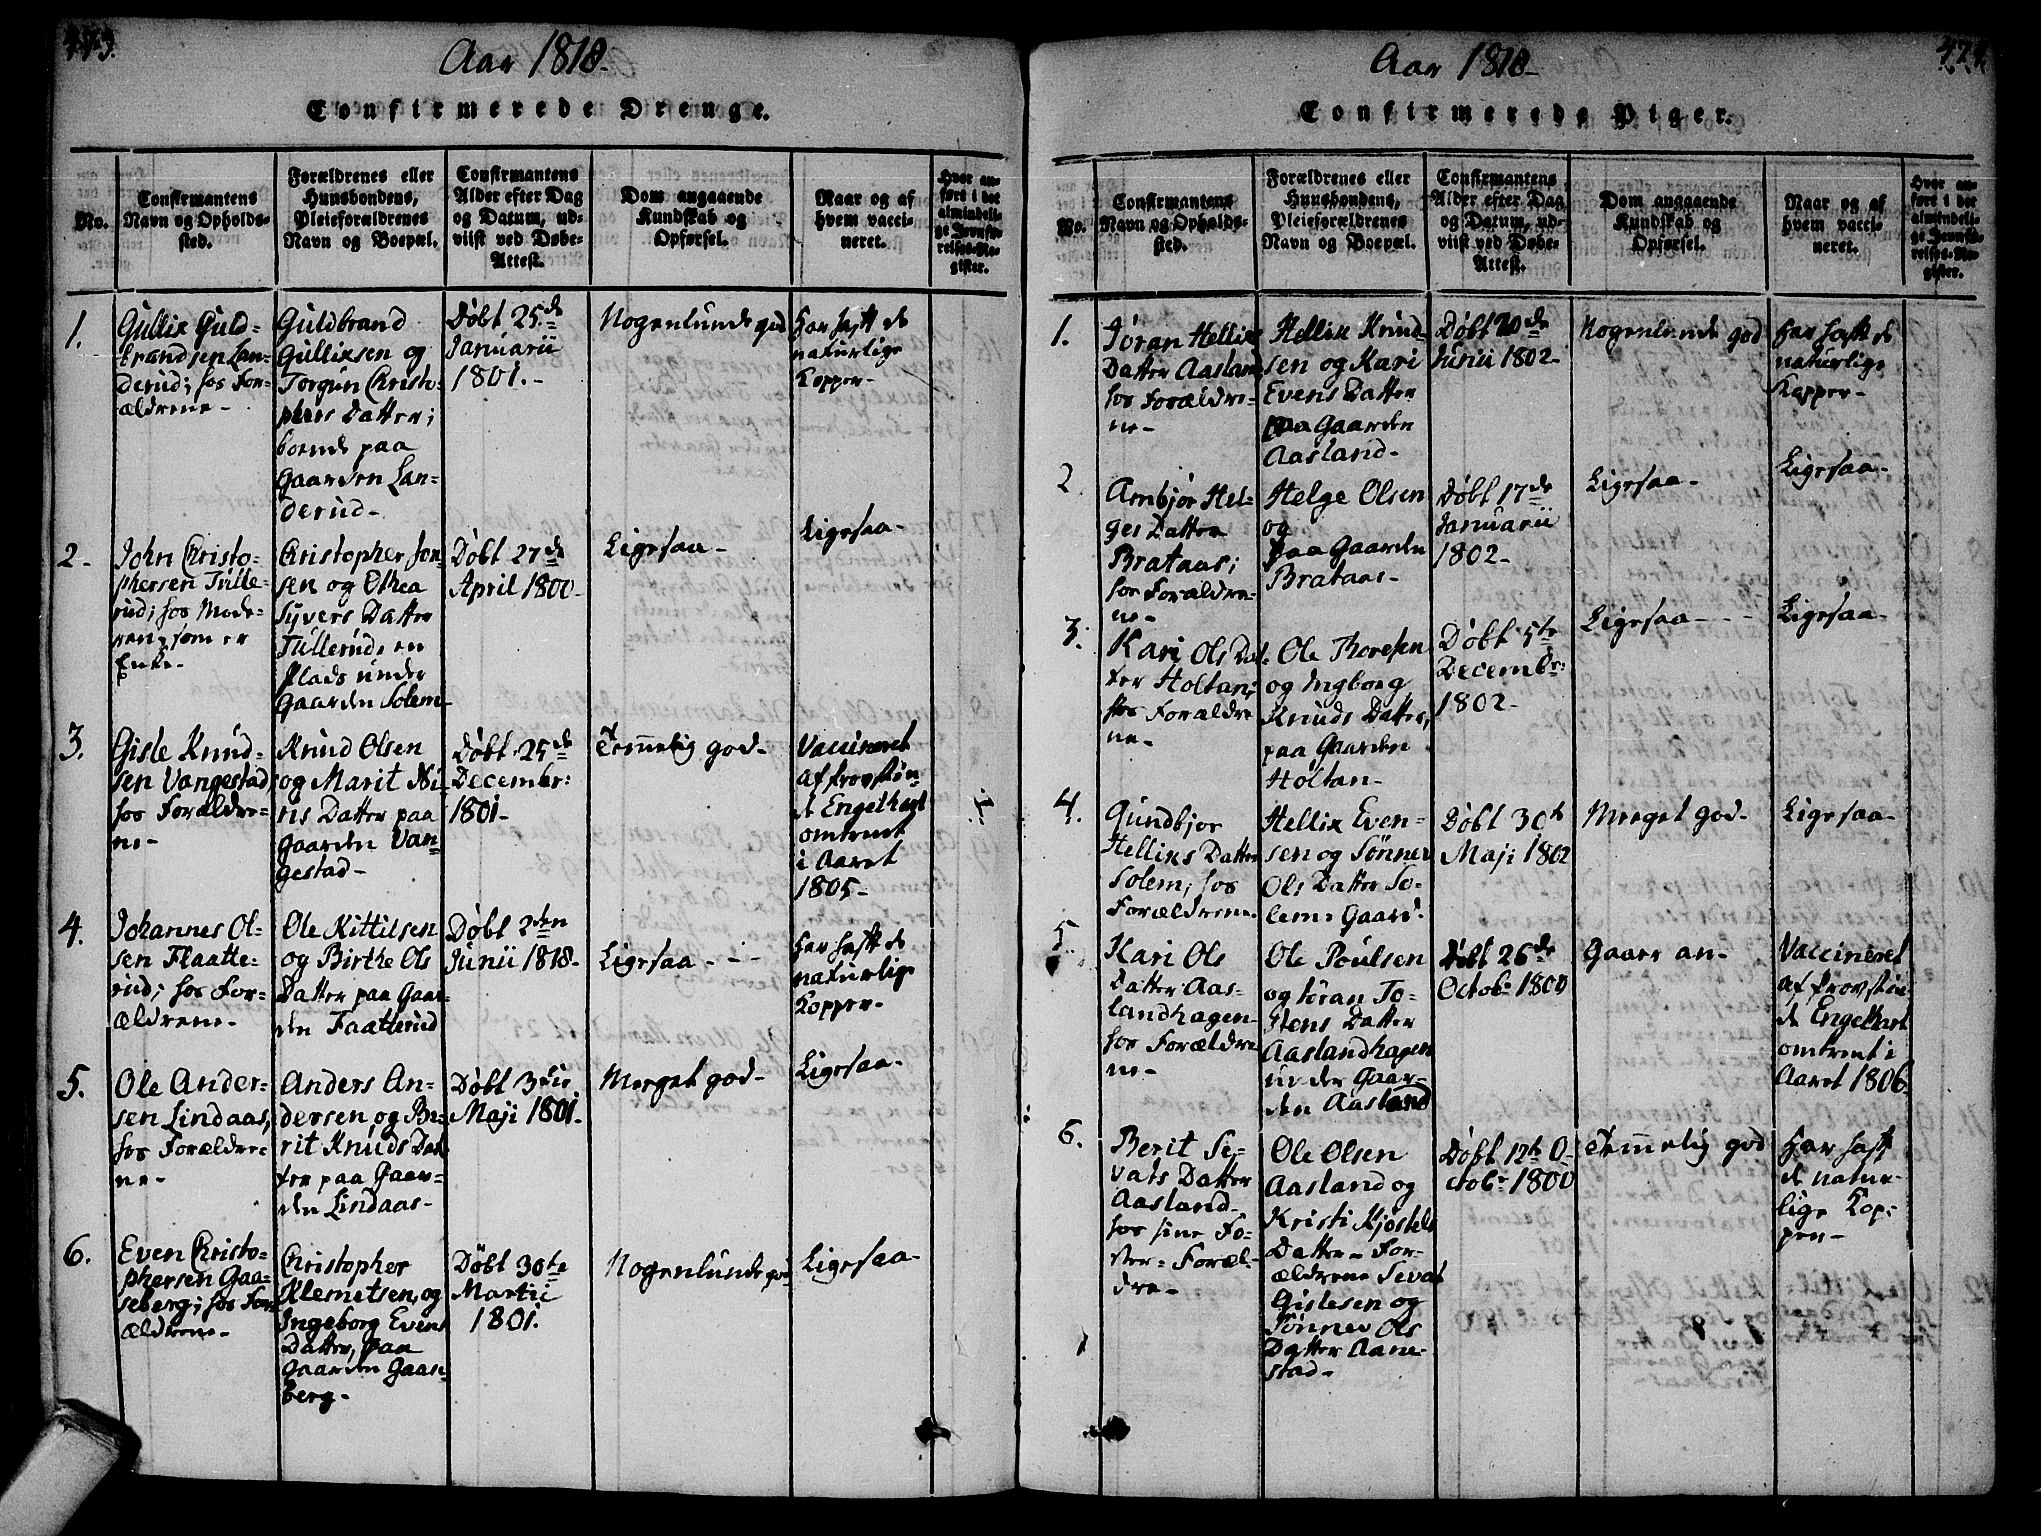 473.
Aar 1818-
Confirmerede Drenge.
No.
Confirmantens
Navn og Opholds-
sted.
Forældrenes eller
Huusbondens,
Pleieforældrenes
Navn og Boepæl.
Confirmantens
Alder efter Dag
og Datum, ud-
viist ved Døbe-
Attest.
Dom angaaende
Kundskab og
Opførsel.
Naar og af
hvem vacci-
neret.
Hvor an-
ført i det
almindeli-
ge Jevnfø-
relses-Re-
gister.
1.
Gullix Guld-
brandsen Lan-
derud; hos For-
ældrene-
Guldbrand
Gullixsen og
Torgun Christ-
phers Datter;
boende paa
Gaarden Lan-
derud-
Døbt 25de
Januarii
1801.-
Nogenlunde god
Har haft de
naturlige
Kopper-
2-
John Christo-
phersen Tülle-
rud; hos Mode-
ren, som er
Enke-
Christopher Jon-
sen og Othea
Syvers Datter
Tüllerud, en
Plads under
Gaarden Solem-
Døbt 27de
April 1800-
Ligesaa-
Ligesaa-
3.
Gisle Knud-
sen Vangestad,
hos Forældre-
ne-
Knud Olsen
og Marit Ni-
ris Datter paa
Gaarden Van-
gestad-
Døbt 25de
Decembr:
1801-
Temmelig god-
Vaccineret
af Provstin-
de Engelhart
omtrent
i Aaret
1805-
4.
Johannes Ol-
sen Flaatte-
rud; hos For-
ældrene-
Ole Kittilsen
og Birthe Ols
Datter paa Gaar-
den Faatterud
Døbt 2den
Junii 1818-
Ligesaa - - -
Har haft de
naturlige
Kopper-
5.
Ole Ander-
sen Lindaas,
hos Forældre-
ne-
Anders An-
dersen og Be-
rit Knuds Dat-
ter paa Gaar-
den Lindaas-
Døbt 3die
Maji 1801-
Meget god-
Ligesaa-
6.
Even Christo-
phersen Gaa-
seberg; hos For-
ældrene-
Christopher
Klemetsen, og
Ingeborg Evens
Datter, paa
Gaarden Gaas-
berg-
Døbt 30te
Martii
1801.
Nogenlunde god
Ligesaa-
474.
Aar 1818-
Confirmerede Piger.
No.
Confirmantens
Navn og Opholds-
sted.
Forældrenes eller
Huusbondens,
Pleieforældrenes
Navn og Boepæl.
Confirmantens
Alder efter Dag
og Datum, ud-
viist ved Døbe-
Attest.
Dom angaaende
Kundskab og
Opførsel.
Naar og af
hvem vacci-
neret.
Hvor an-
ført i det
almindeli-
ge Jevnfø-
relses-Re-
gister.
1.
Jøran Hellix
Datter Aasland
hos Forældre-
ne-
Hellix Knud-
sen og Kari
Evens Datter
paa Gaarden
Aasland-
Døbt 20de
Junii 1802-
Nogenlunde god
Har haft de
naturlige
Kopper-
2
Ambjør Hel-
ges Datter
Brataas;
hos Forældre-
ne-
Helge Olsen
og
paa Gaarden
Brataas-
Døbt 17de
Januarii
1802-
Ligesaa-
Ligesaa-
3.
Kari Ols Dat-
ter Holtan;
hos Forældre
ne-
Ole Thoresen
og Ingborg
Knuds Datter,
paa Gaarden
Holtan-
Døbt 5te
Decembr:
1802-
Ligesaa- - -
Ligesaa-
4.
Gundbjor
Hellixs Datter
Solem; hos
Forældrene.
Hellix Even-
sen og Sønnev
Ols Datter So-
lem: Gaard.
Døbt 30te
Maji 1802
Meeget god-
Ligesaa-
5.
Kari Ols
Datter Aas-
landhagen-
hos Forældre
ne-
Ole Poulsen
og Jøran To-
stens Datter
Aaslandhagen
under Gaar-
den Aasland
Døbt 26de
Octobr 1800
Gaaer an-
Vaccineret
af Provstin-
de Engelhart
omtrent i
Aaret 1806.
6.
Berit Se-
vats Datter
Aasland-
hos sine Fo-
ster-Foræl-
dre-
Ole Olsen
Aasland og
Kristi Kjostels
Datter- For-
ældrene Sevat
Gislesen og
Sønnev Ols
Datter Aane-
stad-
Døbt 12te O-
ctobr 1800
Temmelig god
Har haft
de natur-
lige Kop-
per-